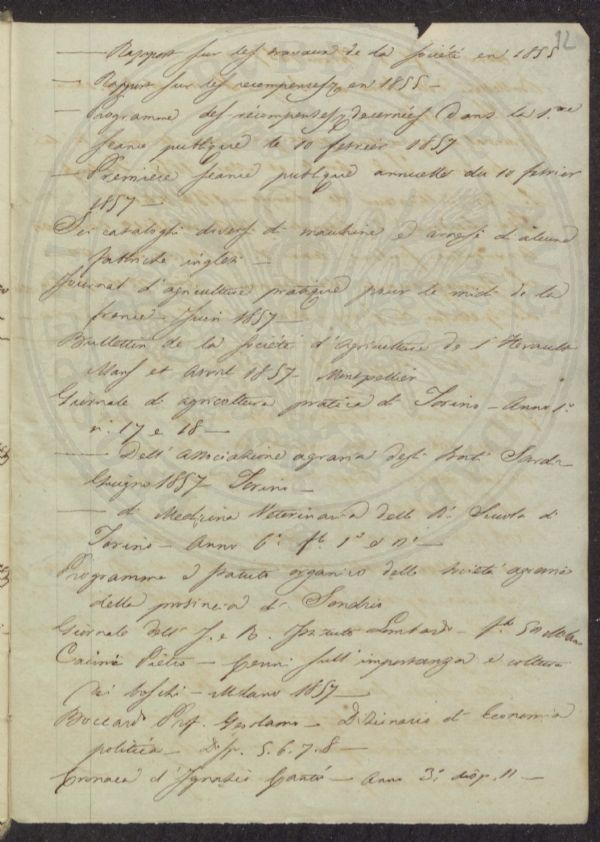 12
— Rapport sur les travaux de la Société en 1855
— Rapport sur les recompenses en 1855 —
— Programme des récompenses decernées dans la 1.me
seance publique le 10 fevrier 1857
— Première seance publique annuelle du 10 fevrier
1857 —
Sei cataloghi diversi di macchine e arnesi di alcune
fabbriche inglesi —
Journal d'agriculture pratique pour le midi de la
france — Juin 1857 —
Bulletin de la Société d'Agriculture de l'Herault
Mars et Avril 1857 Montpellier
Giornale di agricoltura pratica di Torino — Anno 1.°
n.i 17 e 18 —
— Dell'associazione agraria degli Stati Sardi
Giugno 1857 Torino —
— di Medicina Veterinaria della R.a Scuola di
Torino — Anno 6.° 1.° e
Programma e statuto organico della Società agraria
della provincia di Sondrio
Giornale dell' I. e R. Istituto Lombardo — 50
Caimi Pietro — Cenni sull'importanza e coltura
dei boschi — Milano 1857 —
Boccardo Prof. Gerolamo — Dizionario di Economia
politica — Disp. 5. 6. 7. 8 —
Cronaca d'Ignazio Cantù — Anno 3.° disp. 11 —